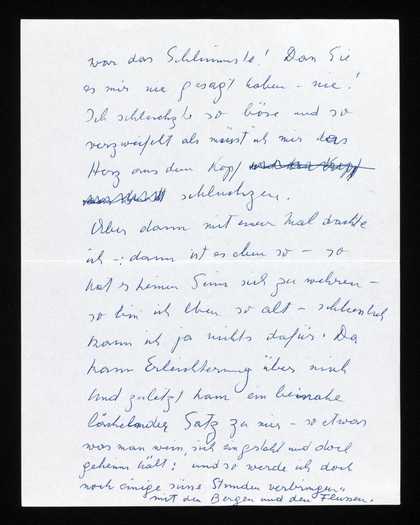 war das Schlimmste! Dass Sie
es mir nie gesagt haben - nie!
Ich schluchzte so böse und so
verzweifelt als müsst ich mir das
Herz aus dem Kopf
schluchzen.
Aber dann mit einem Mal dachte
ich -: dann ist es eben so - so
hat es keinen Sinn sich zu wehren -
so bin ich eben so alt - schliesslich
kann ich ja nichts dafür. Da
kam Erleichterung über mich
Und zuletzt kam ein beinahe
lächelnder Satz zu mir - so etwas
was man sich eingesteht und doch
geheim hält: und so werde ich doch
noch einige süsse Stunden verbringen
mit den Bergen und den Flüssen.